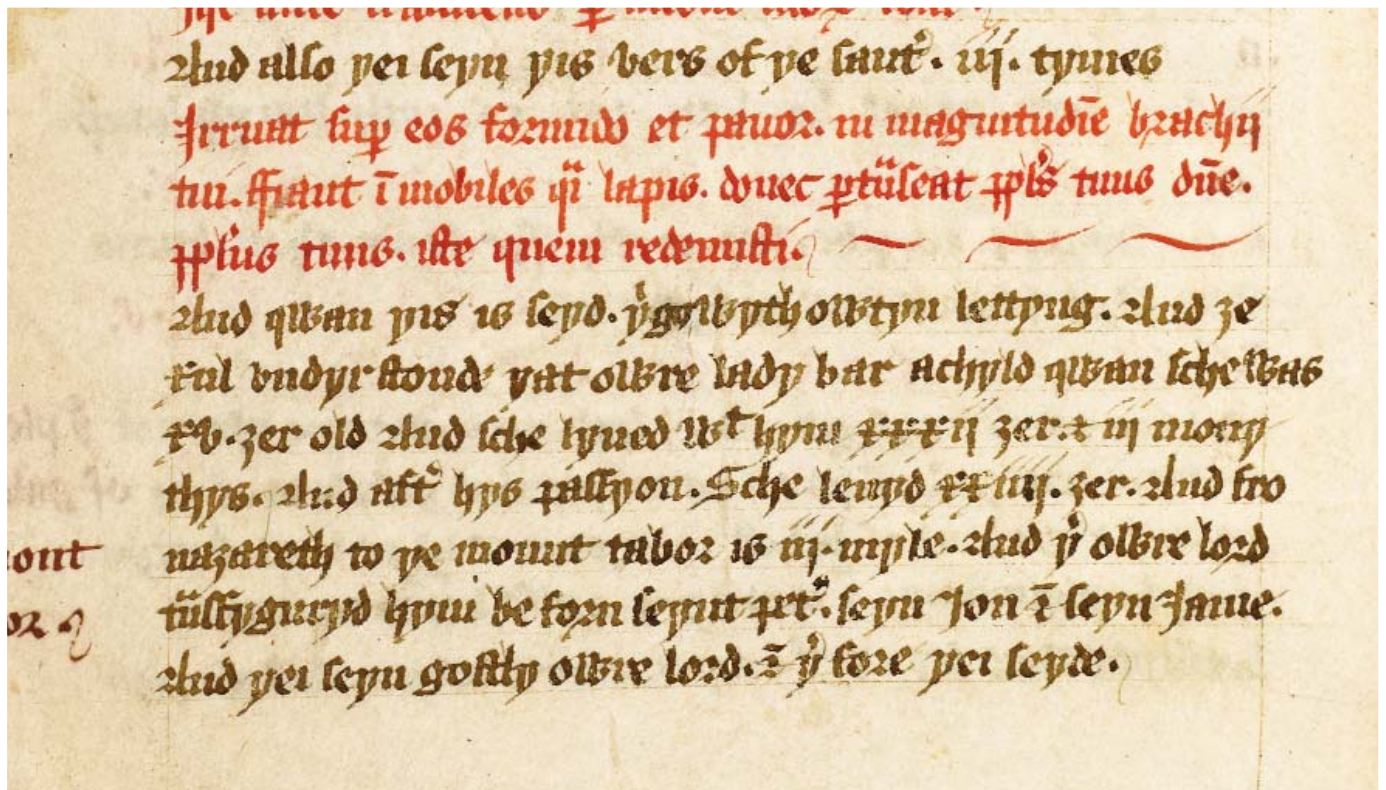 And also yei seyn yis vers of ye saut̉. iij. tymes
Irruat suꝑ eos formido et pauor. in magnitudīe brachij
tui. ffiant īmobiles qͣ lapis. donec ꝑtͣnseat ppl̉s tuus dn̄e.
pplus tuus. iste quem redemisti.
And qwan yis is seyd. yͤ go wythowtyn lettyng. And ze
xul vndyrstonde yat owre lady bar achyld qwan sche was
xv. zer old And sche lyued wͭ hym xxxij zer. & iij mony
thys. And aft̉ hys passyon. Sche leuyd xxiiij. zer. And fro
nazareth to ye mount tabor is iij. myle. And y̓ owre lord
tͣnsfyguryd hym beforn seynt pet̉. seyn Jon & seyn Jame.
And yei seyn gostly owre lord. & y̓fore yei seyde.
ont
or